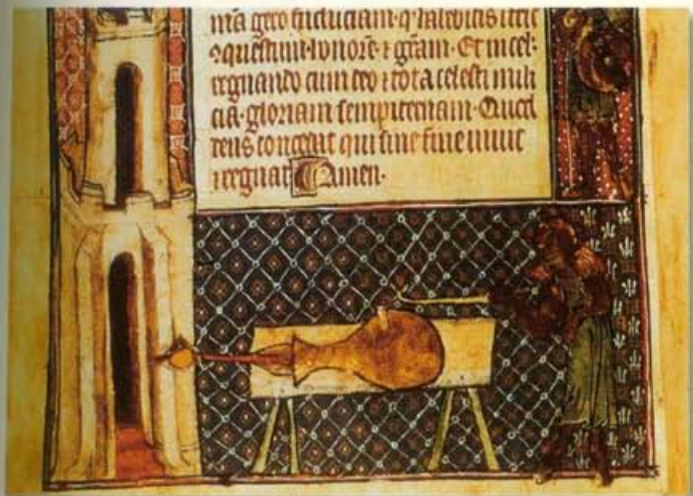 mā gero fiduciam· q̄ valebitis
honorē· ⁊ gr̄am· Et in cel·
regnando cum deo ⁊ tota celesti mili
cia· gloriam sempiternam· Quod
concedat qui sine fine uiuit
⁊ regnat Amen·